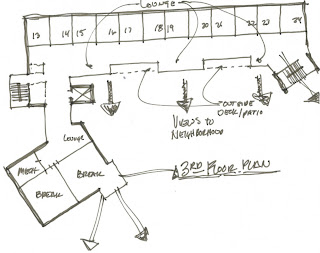 LOUNGE
13 14 15 16 17 18 19 20 21 22 23 24
OUTSIDE
DECK/PATIO
VIEWS TO
NEIGHBORHOOD
LOUNGE
MECH
BREAK
BREAK
3RD FLOOR PLAN